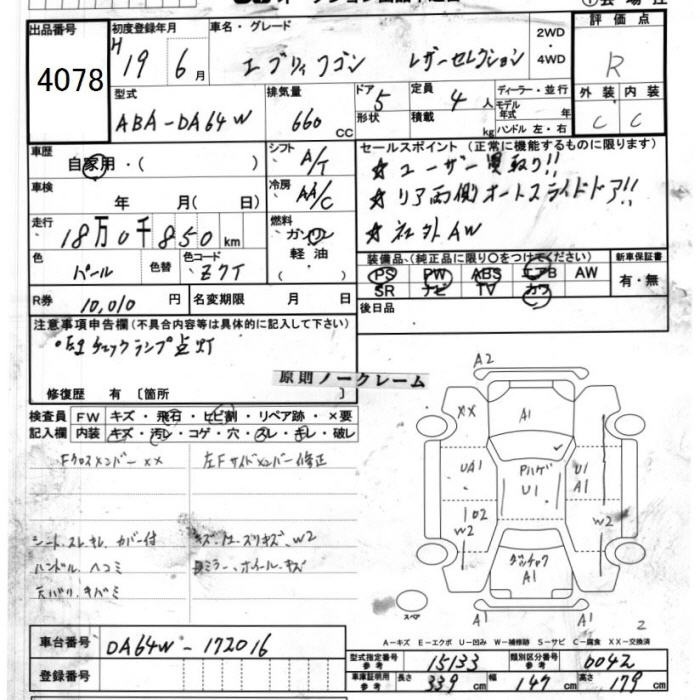 出品番号
4078
初度登録年月
H 19 6月
車名・グレード
エブリィワゴン レザーセレクション
2WD
・
4WD
評価点
R
型式
ABA-DA64W
排気量
660 CC
ドア 5
形状
定員 4 人
積載 kg
ディーラー・並行
モデル年式 年
ハンドル 左・右
外装 内装
C C
車歴
自家用・( )
シフト A/T
セールスポイント (正常に機能するものに限ります)
☆ ユーザー買取り!!
☆ リア両側オートスライドドア!!
☆ 社外AW
車検
年 月( 日)
冷房 AA/C
走行
18万0千850km
燃料
ガソリン
軽油
( )
色 パール
色替
色コード Z7T
装備品、(純正品に限り○をつけてください)
PS PW ABS エアB AW
SR ナビ TV カワ
新車保証書
有・無
R券 10,010 円
名変期限 月 日
後日品
注意事項申告欄(不具合内容等は具体的に記入して下さい)
チェックランプ点灯
原則ノークレーム
修復歴 有 [箇所 ]
検査員
記入欄
FW キズ・飛石・ヒビ割・リペア跡・×要
内装 キズ・汚レ・コゲ・穴・スレ・キレ・破レ
Fクロスメンバー××
左Fサイドメンバー修正
シート、スレ、キレ、カバー付
ハンドル、ヘコミ
W2
A2
XX
A1
UA1
Pハゲ
U1
U1
A1
102
W2
W2
ダッチャク
A1
スペア
A1 A1
2
A-キズ E-エクボ U-凹み W-補修跡 S-サビ C-腐食 XX-交換済
車台番号
DA64W-172016
登録番号
型式指定番号
参考
15133
類別区分番号
参考
0042
車庫証明用
参考
長さ 339 cm
幅 147 cm
高さ 179 cm